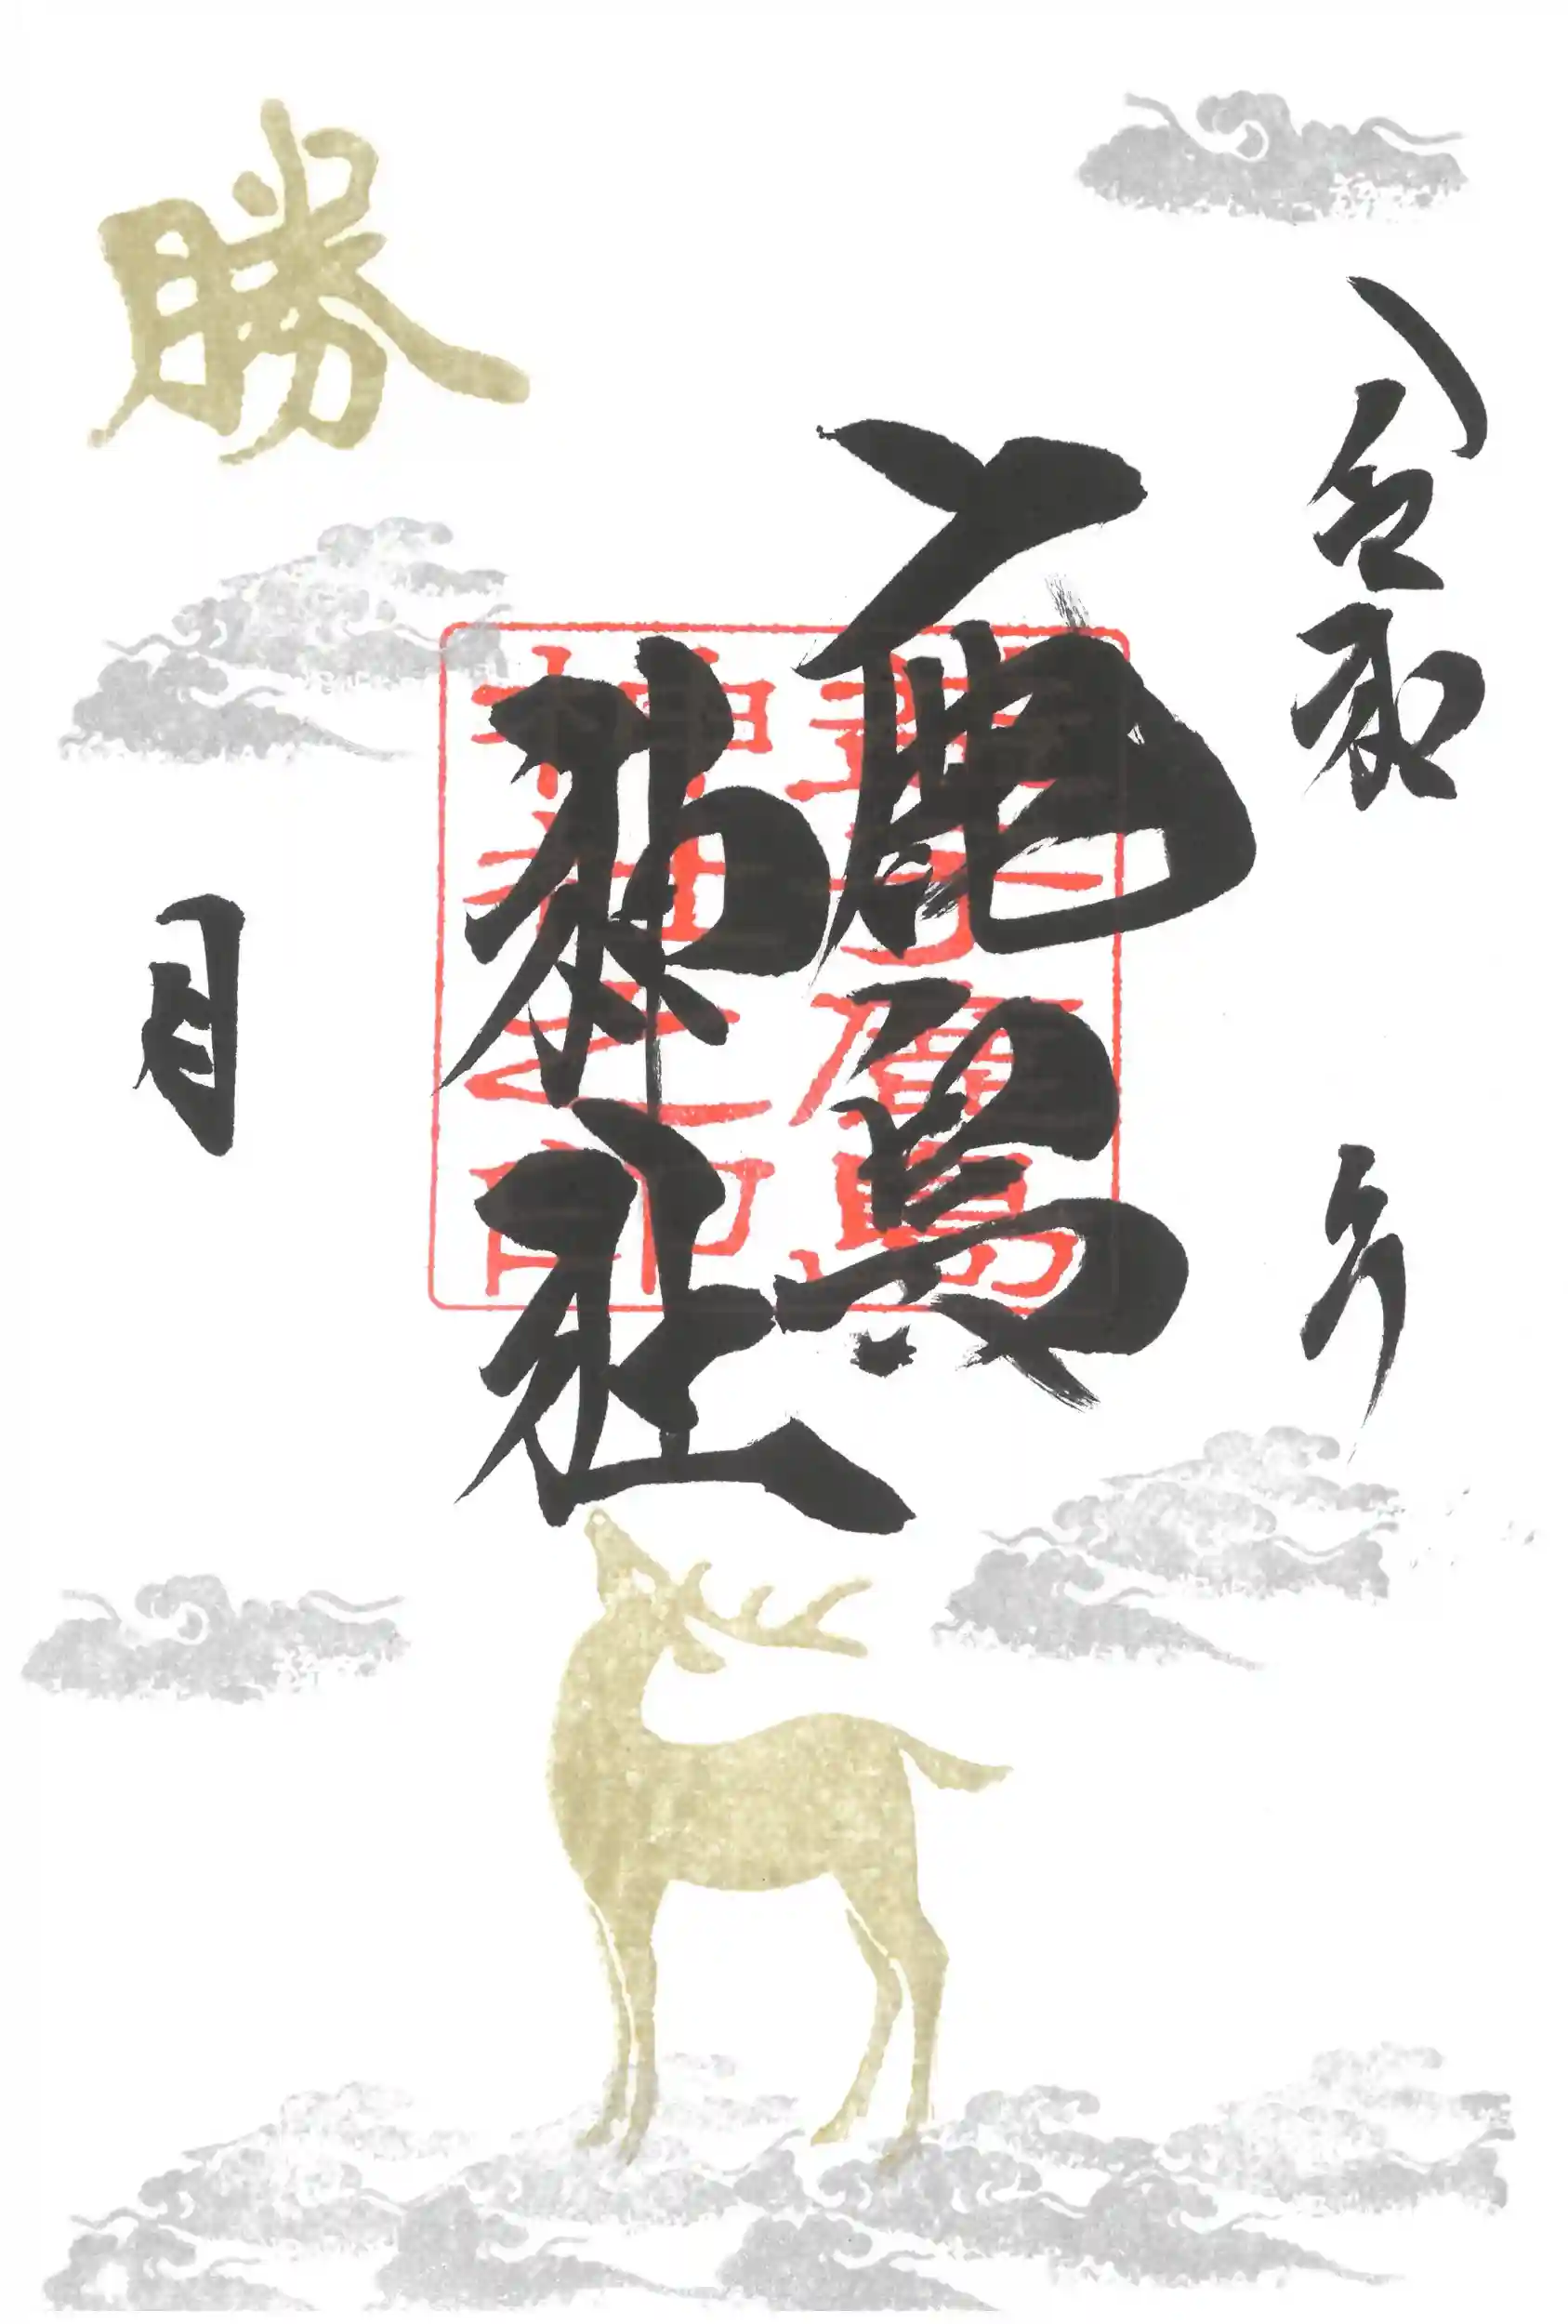 令和 年
鹿島
神社
月
勝
鹿島
神社之印